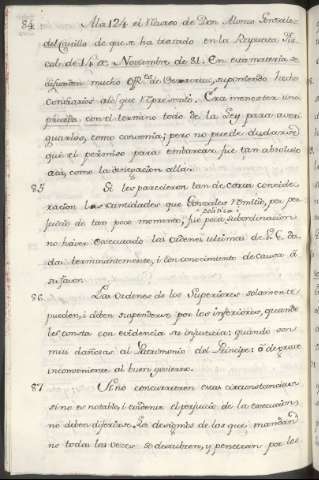 84. A la 124 el Nuevo de Don Alonso Gonzalez
del Castillo de que se ha tratado en la Respuesta Fis-
cal de 14 de Noviembre de 81. En esta materia se
difunden mucho Offs. de Barrotas, suponiendo hechos
contrarios a los que representó. Era menester una
prueba con el termino todo de la Ley para averi-
guarlos, como convenia; pero no puede dudarse
que el permiso para embarcar fue tan absoluto
aca, como la denegacion alla.
85 Si les parecieron tan de corta conside-
racion las cantidades que Gonzalez remitió, por per-
juicio de tan poco momento, fue poca subordinacion
no haver executado las ordenes ultimas de V.E. da-
das terminantemente, i con conocimiento de causa
86. Las Ordenes de los Superiores solamente
pueden, i deben suspenderse por los inferiores, quando
les consta con evidencia su injusticia: quando son
mui dañosas al Patrimonio del Principe: ó de grave
inconveniente al buen govierno.
87. Si no concurrieren estas circunstancias
si no es notable, i evidente el perjuicio de la execucion,
no deben diferirse. Los designios de los que mandan
no todas las veces se descubren, y penetran por los